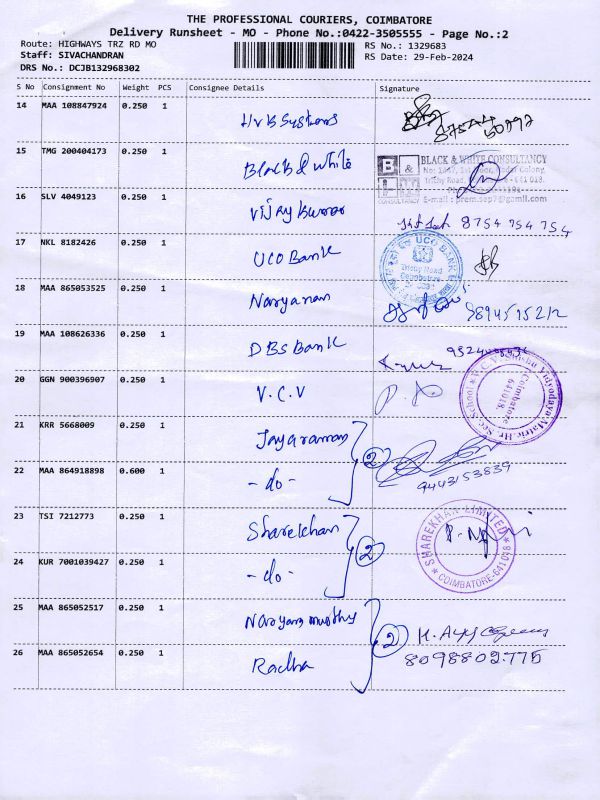 THE PROFESSIONAL COURIERS, COIMBATORE
Delivery Runsheet - MO - Phone No.:0422-3505555 - Page No.:2
Route: HIGHWAYS TRZ RD MO RS No.: 1329683
Staff: SIVACHANDRAN RS Date: 29-Feb-2024
DRS No.: DCJB132968302
S No Consignment No Weight PCS Consignee Details Signature
14 MAA 108847924 0.250 1 HVB Systems
15 TMG 200404173 0.250 1 Black & White
B & BLACK & WHITE CONSULTANCY
CONSULTANCY E-mail : prem.sep7@gamil.com
16 SLV 4049123 0.250 1 Vijay Kumar 8754 754 754
17 NKL 8182426 0.250 1 UCO Bank
UCO BANK
Trichy Road
Coimbatore
18 MAA 865053525 0.250 1 Naryanan 9894515212
19 MAA 108626336 0.250 1 DBS Bank
20 GGN 900396907 0.250 1 V.C.V
V.C.V. Shishu Vidyodaya Matric. Hr. Sec. School
Coimbatore
641018.
21 KRR 5668009 0.250 1 Jayaraman
2
22 MAA 864918898 0.600 1 - do - 9443153839
23 TSI 7212773 0.250 1 Sharekhan
SHAREKHAN LIMITED
COIMBATORE-641018
2
24 KUR 7001039427 0.250 1 - do -
25 MAA 865052517 0.250 1 Narayana murthy
2
26 MAA 865052654 0.250 1 Radha 8098802775